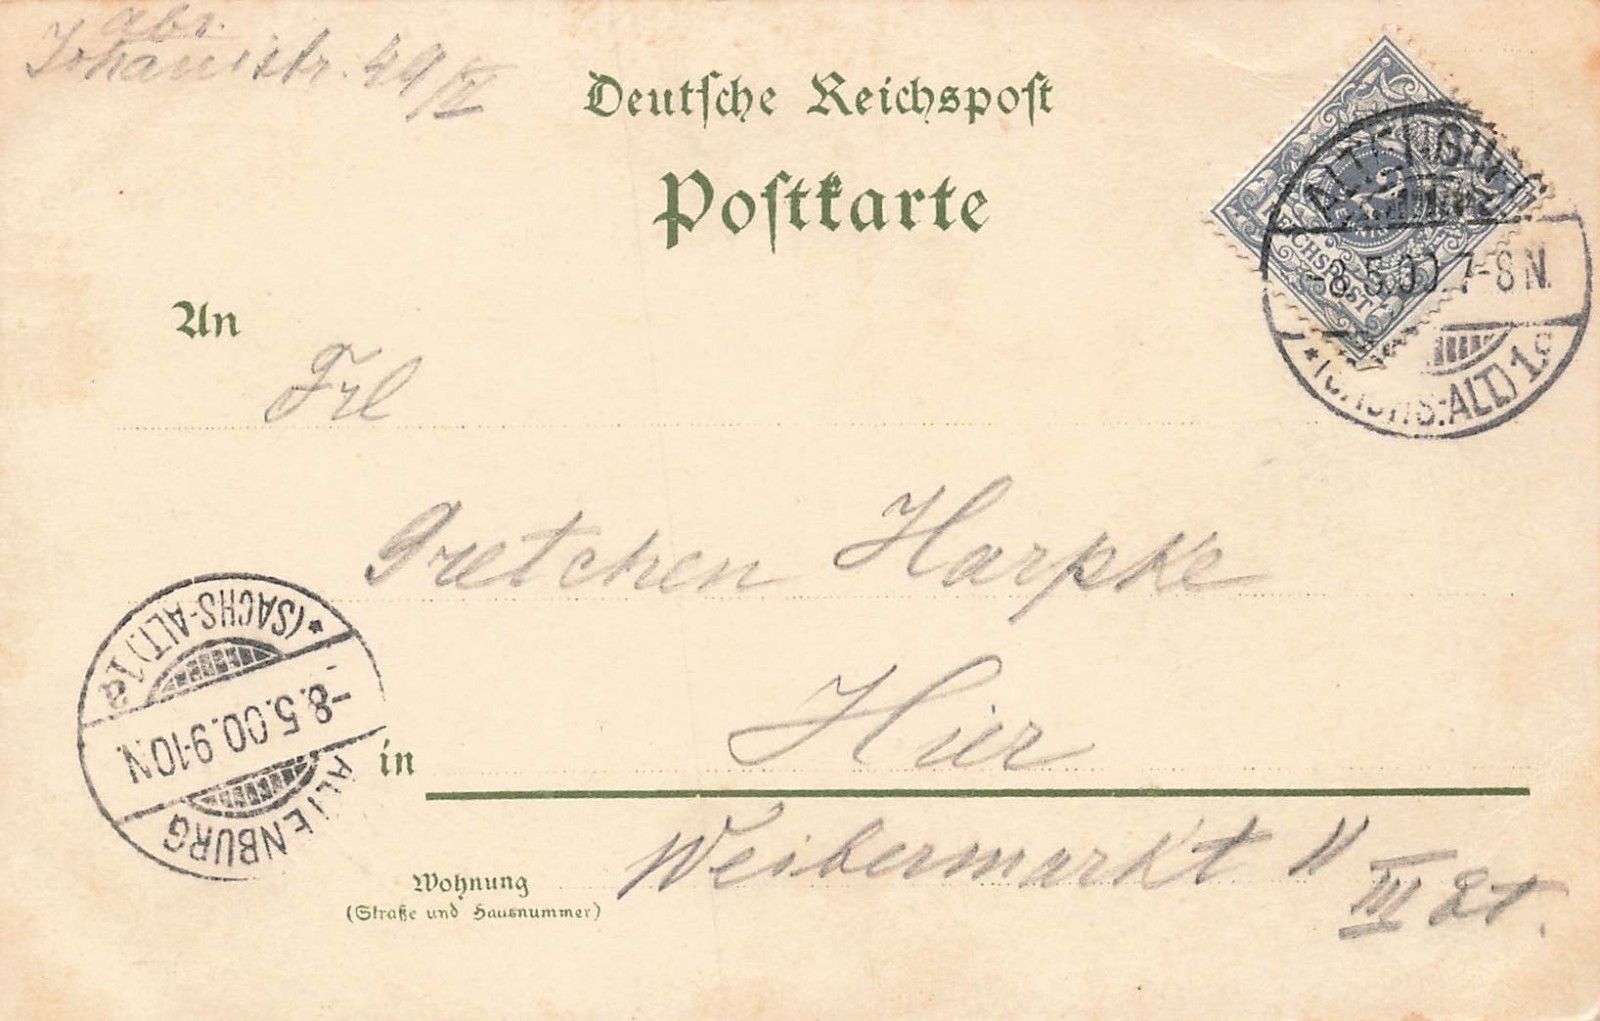 abs.
Johannistr. 49/II
Deutsche Reichspost
Postkarte
REICHSPOST
ALTENBURG
-8.5.00.7-8N.
*(SACHS-ALT.)1a
An
Frl
Gretchen Harpke
in Hier
Wohnung
(Straße und Hausnummer)
Weibermarkt 11
III Et.
*(SACHS-ALT.)1a
-8.5.00.9-10N
ALTENBURG